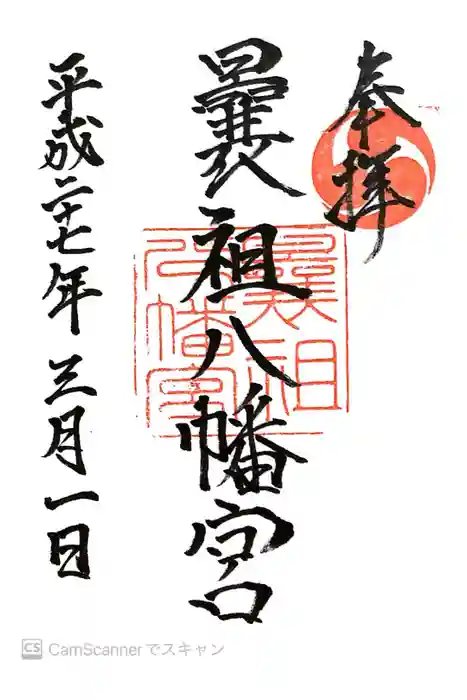 奉拝
曩祖八幡宮
曩祖
八幡宮
平成二十七年三月一日
CS CamScannerでスキャン